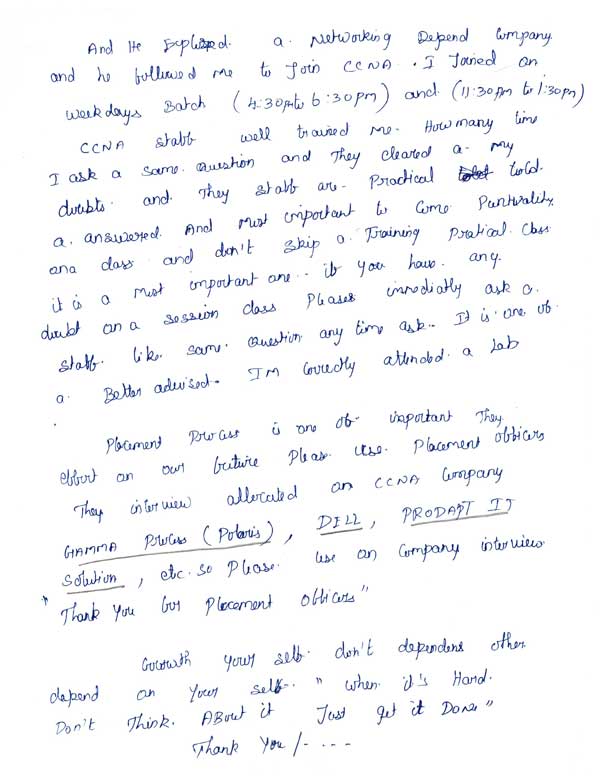 And He Explized. a. Networking Depend Company
and he followed me to Join CCNA. I Joined an
weekdays Batch (4:30pm to 6:30pm) and (11:30pm to 1:30pm)
CCNA staff well trained me. How many time
I ask a same. Question and They cleared a. my
doubts. and. They staff are. Practical told.
a. answered. And most important to Come Puntuality.
ana class and don't skip a. Training Pratical. Class
it is a most important one.. if you have. any.
doubt an a session class Pleases immediatly ask a.
staff. like. same. Question any time ask.. It is one of.
a. Better adviced.. I'm Correctly attended. a Lab
.
Placement Process is one of. important They
effort an our furture Please. Use. Placement officers
They interview allocated an CCNA Company
GAMMA Process (Polaris), DELL, PRODAPT IT
Solution, etc. so Please. use an Company interview.
" Thank You for Placement Officers"
Gowth your self. don't dependens other
depend an your self.. " when it's Hard.
Don't Think. About it Just get it Done"
Thank You /- ...